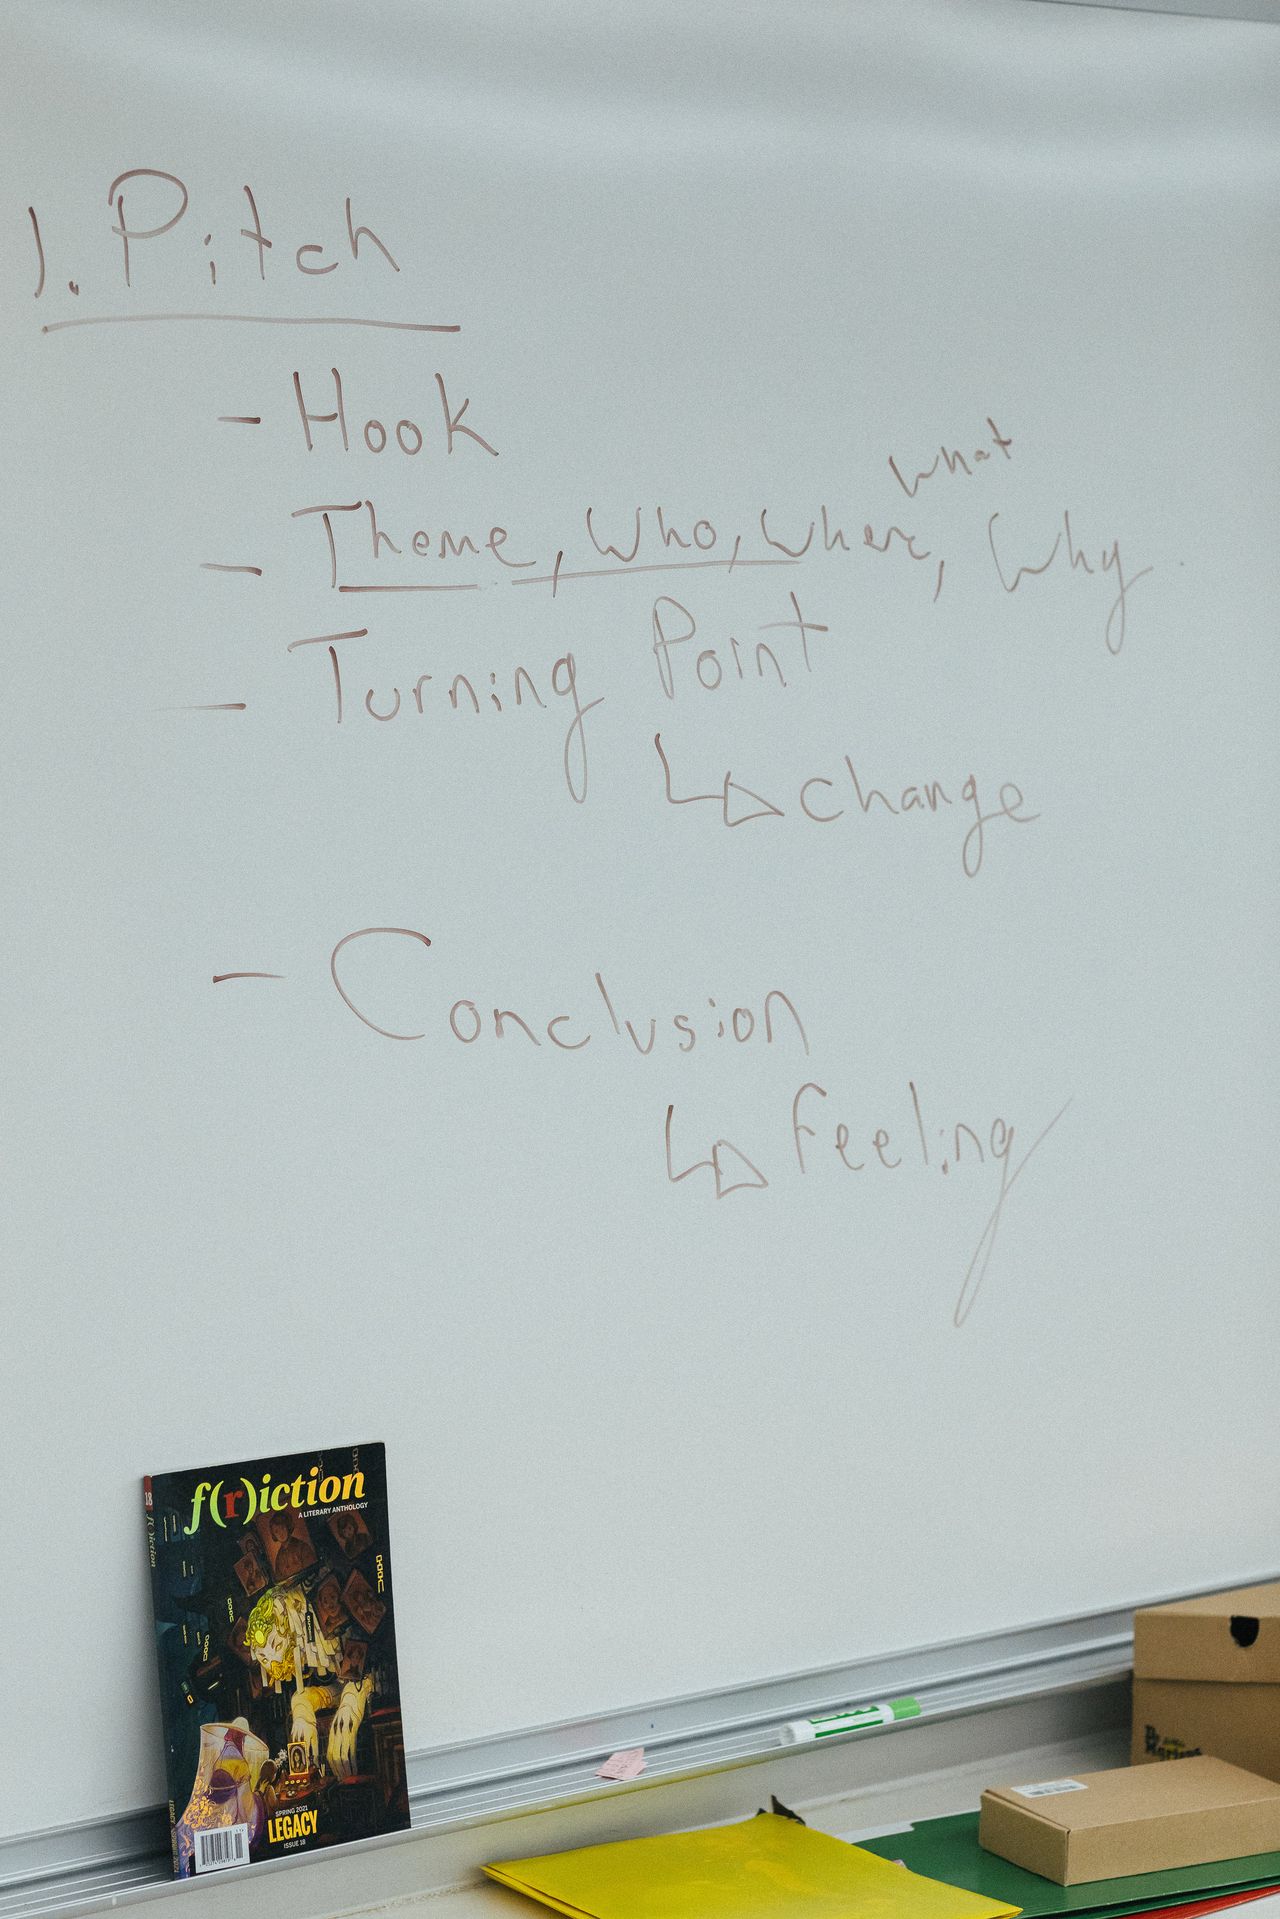 1. Pitch
- Hook
what
- Theme, Who, Where, Why.
- Turning Point
change
- Conclusion
Feeling
18
f(r)iction
f(r)iction
A LITERARY ANTHOLOGY
SPRING 2021
LEGACY
ISSUE 18
Dr. Martens